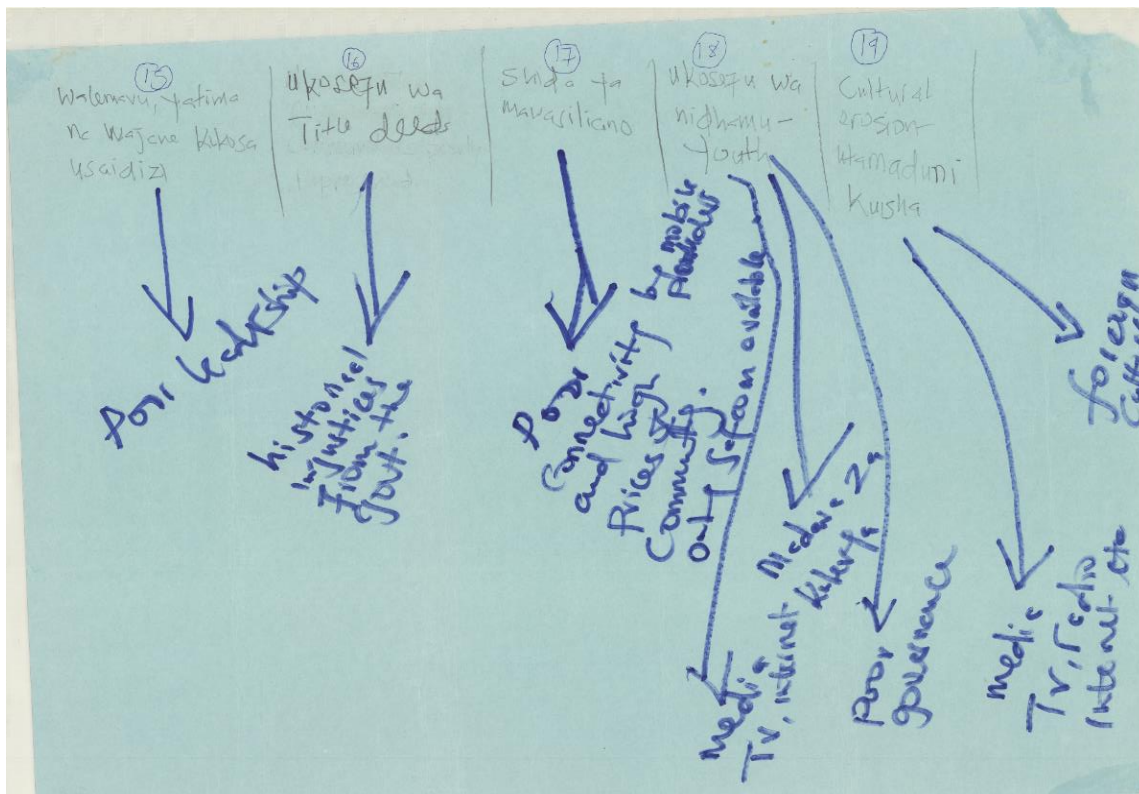 15
Walemavu, yatima
na wajane kukosa
usaidizi
Poor leadership
16
ukosefu wa
Title deeds
historical
injustices
from the
govt.
17
Shida ya
mawasiliano
Poor
Connectivity by mobile
and high
Prices of
Commodity.
only Safcom available
18
ukosefu wa
nidhamu-
youth
Media
Tv, internet
Poor
governance
19
Cultural
erosion-
utamaduni
Kuisha
Media
Tv, radio
Internet etc
foreign